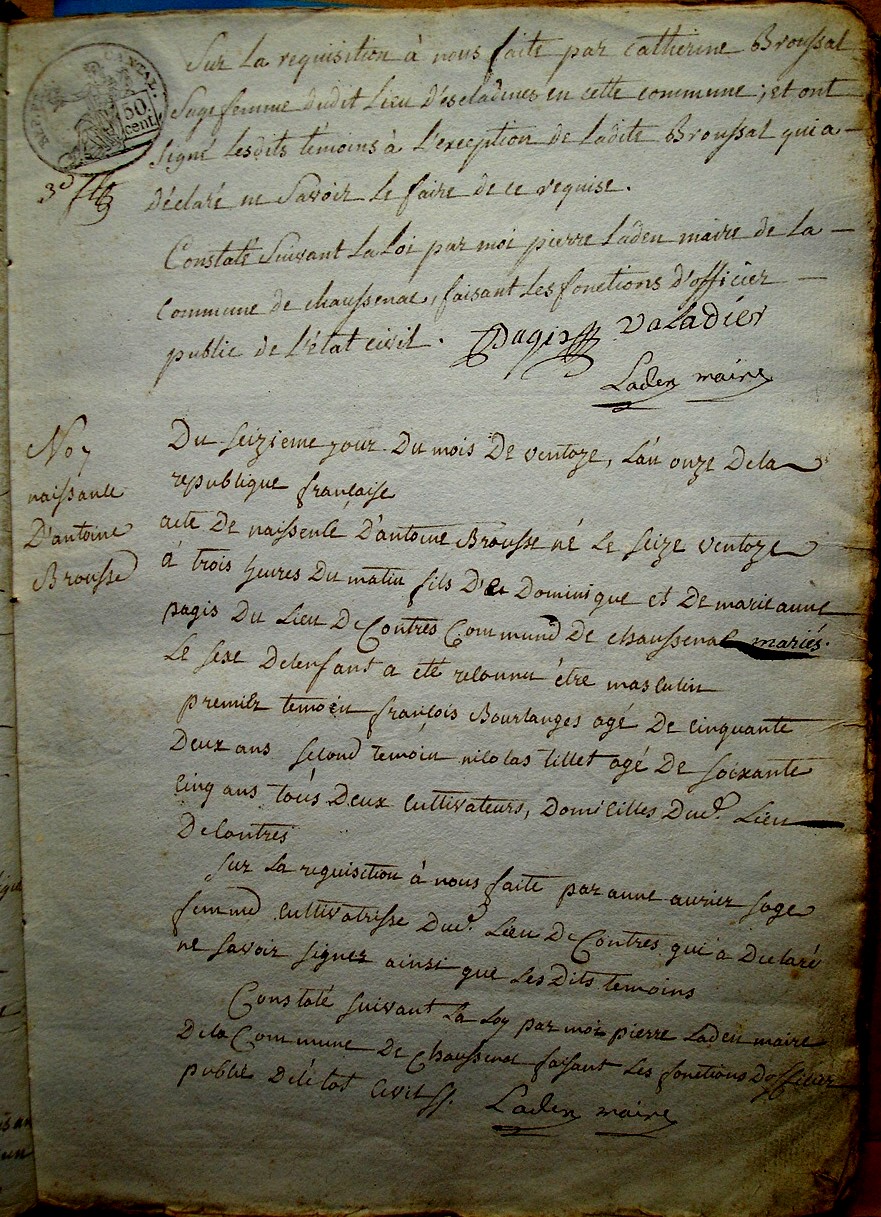 CANTAL
50
cent.
Sur la requisition à nous faite par Catherine Broussal
Sage femme dudit Lieu D'escladines en cette commune ; et ont
signé lesdits témoins à l'exception de Ladite Broussal qui a
déclaré ne Savoir le faire de ce requise.
Constaté Suivant La Loi par moi pierre Laden maire de La
commune de chaussenac, faisant les fonctions d'officier
public de l'état civil. Pagis Valadier
Laden maire
No 7
naissante
D'antoine
Brousse
Du seizieme jour Du mois De ventoze, L'an onze De la
republique française
acte De naissence D'antoine Brousse né Le seize ventoze
à trois heures Du matin fils De Dominique et De marie anne
pagis Du Lieu De Contres Commune De chaussenac mariés.
Le sexe Delenfant a eté reconnu être masculin
premier temoin françois Bourlanges agé De cinquante
Deux ans second temoin nicolas tillet agé De soixante
cinq ans tous Deux Cultivateurs, Domicilles Dud. Lieu
De Contres
sur La requisition à nous faite par anne aurier sage
femme Cultivatrisse Dud. Lieu De Contres qui a Declaré
ne savoir signer ainsi que Les Dits temoins
Constaté suivant La Loy par moi pierre Laden maire
De la Commune De Chaussenac faisant Les fonctions D'officier
public De l'état Civil. Laden maire